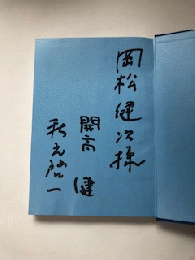 岡松健次様
開高健
秋元啓一